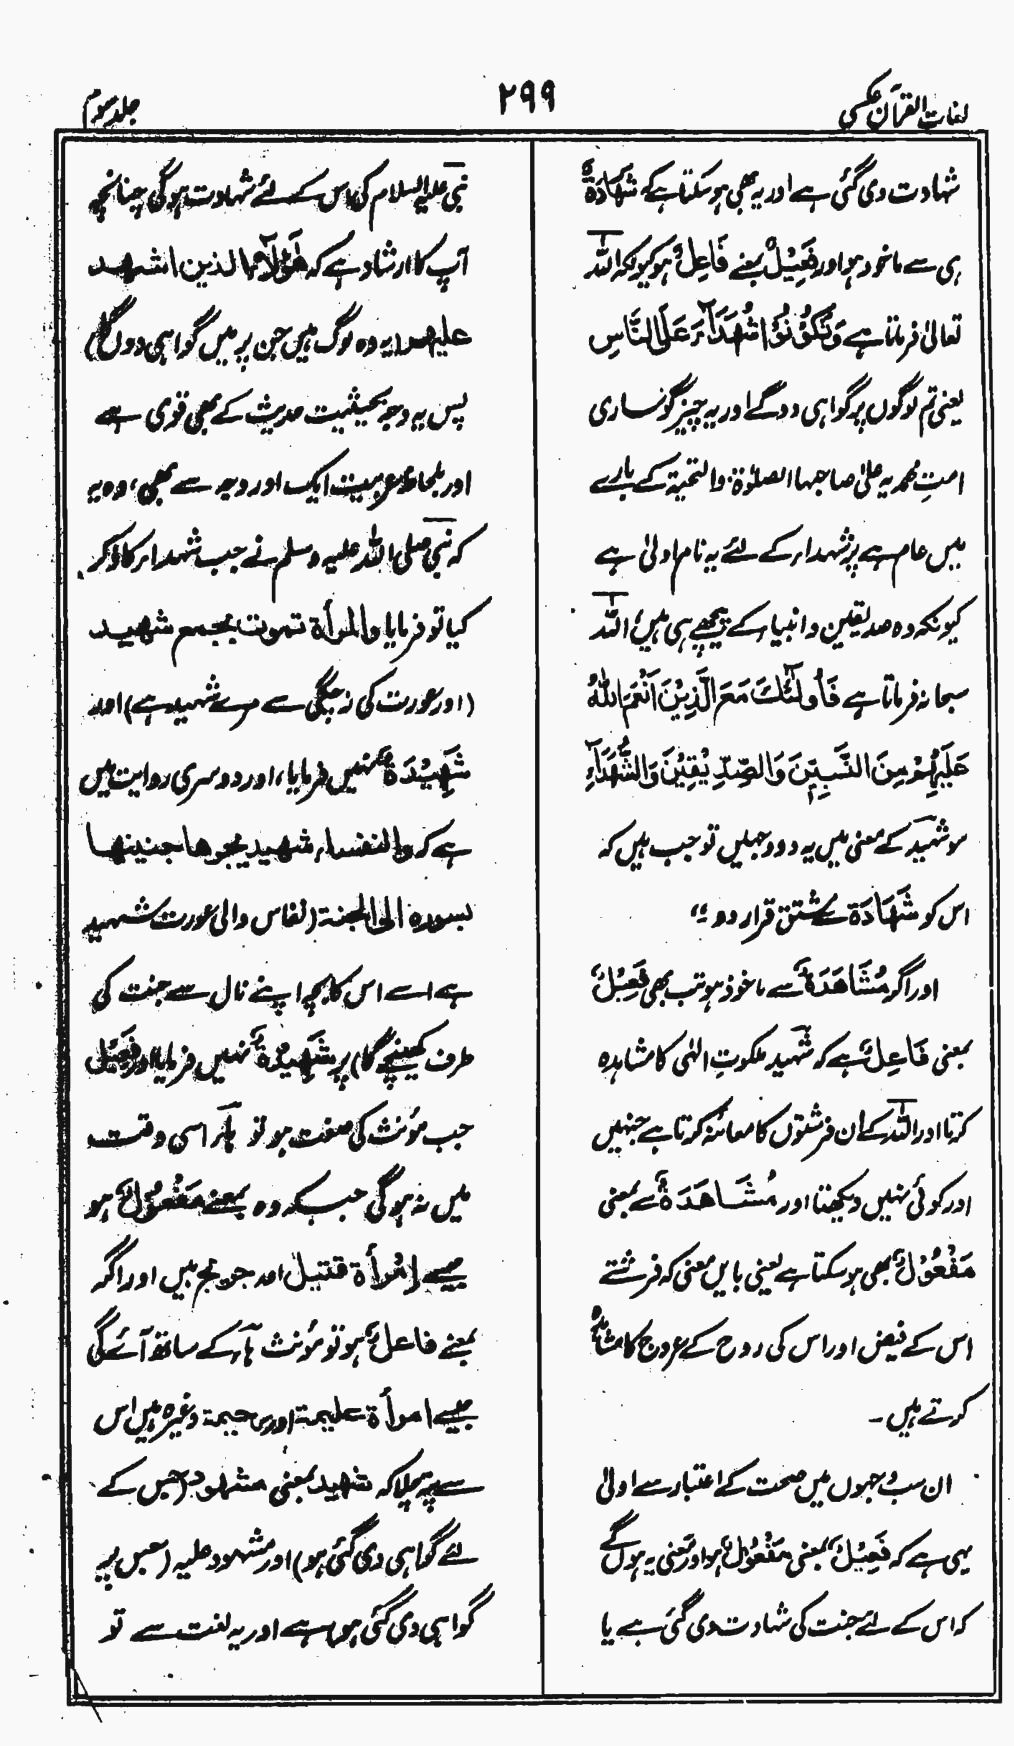 لغات القرآن عکسی
۲۹۹
جلد سوم
شہادت دی گئی ہے اور یہ بھی ہو سکتا ہے کہ شَہَادَۃٌ
ہی سے ماخوذ ہو اور فَعِیْلٌ بمعنے فَاعِلٌ ہو کیونکہ اللہ
تعالیٰ فرماتا ہے وَتَکُوْنُوْا شُهَدَآءَ عَلَى النَّاسِ
یعنی تم لوگوں پر گواہی دو گے اور یہ چیز گو ساری
امتِ محمدیہ علیٰ صاحبہا الصلوٰۃ والتحیۃ کے بارے
میں عام ہے پر شہداء کے لئے یہ نام اولیٰ ہے
کیونکہ وہ صدیقین و انبیاء کے پیچھے ہی ہیں، اللہ
سبحانہ فرماتا ہے فَأُولٰٓئِكَ مَعَ الَّذِيْنَ اَنْعَمَ اللّٰهُ
عَلَيْهِمْ مِنَ النَّبِيّٖنَ وَالصِّدِّيْقِيْنَ وَالشُّهَدَآءِ
سو شہید کے معنی میں یہ دو وجہیں تو جب ہیں کہ
اس کو شَهَادَة سے مشتق قرار دو ؛؛
اور اگر مُشَاهَدَةٌ سے ماخوذ ہو تب بھی فَعِیْلٌ
بمعنی فَاعِلٌ ہے کہ شہید ملکوتِ الہٰی کا مشاہدہ
کرتا اور اللہ کے ان فرشتوں کا معائنہ کرتا ہے جنہیں
اور کوئی نہیں دیکھتا اور مُشَاهَدَةٌ سے بمعنی
مَفْعُوْلٌ بھی ہو سکتا ہے یعنی بایں معنی کہ فرشتے
اس کے فیض اور اس کی روح کے عروج کا مشاہدہ
کرتے ہیں ۔
ان سب وجہوں میں صحت کے اعتبار سے اولیٰ
یہی ہے کہ فَعِیْلٌ بمعنی مَفْعُوْلٌ ہو اور معنی یہ ہوں گے
کہ اس کے لئے جنت کی شہادت دی گئی ہے یا
نبی علیہ السلام کی اس کے لئے شہادت ہوگی چنانچہ
آپ کا ارشاد ہے کہ هٰؤلاء الذين اشهد
عليهم (یہ وہ لوگ ہیں جن پر میں گواہی دوں گا)
پس یہ وجہ بحیثیت حدیث کے بھی قوی ہے
اور بلحاظ عربیت ایک اور وجہ سے بھی، وہ یہ
کہ نبی صلی اللہ علیہ وسلم نے جب شہداء کا ذکر
کیا تو فرمایا والمرأة تموت بجمع شهيد
(اور عورت کی زچگی سے مرے شہید ہے) اور
شَهِيْدَةٌ نہیں فرمایا، اور دوسری روایت میں
ہے کہ والنفساء شهيد يجرها جنينها
بسرره الى الجنة (نفاس والی عورت شہید
ہے اسے اس کا بچہ اپنے نال سے جنت کی
طرف کھینچے گا) پر شَهِيْدَةٌ نہیں فرمایا اور فَعِیْل
جب مؤنث کی صفت ہو تو ہاء اسی وقت
میں نہ ہوگی جب کہ وہ بمعنے مَفْعُوْلٌ ہو
جیسے اِمْرأة قتيل اور جریح ہیں اور اگر
بمعنے فاعلٌ ہو تو مؤنث ہاء کے ساتھ آئے گی
جیسے امرأة عليمة اور رحيمة وغیرہ ہیں اس
سے پتہ چلا کہ شہید بمعنی مشہود (جس کے
لئے گواہی دی گئی ہو) اور مشہود علیہ (جس پر
گواہی دی گئی ہو) ہے اور یہ لغت سے تو